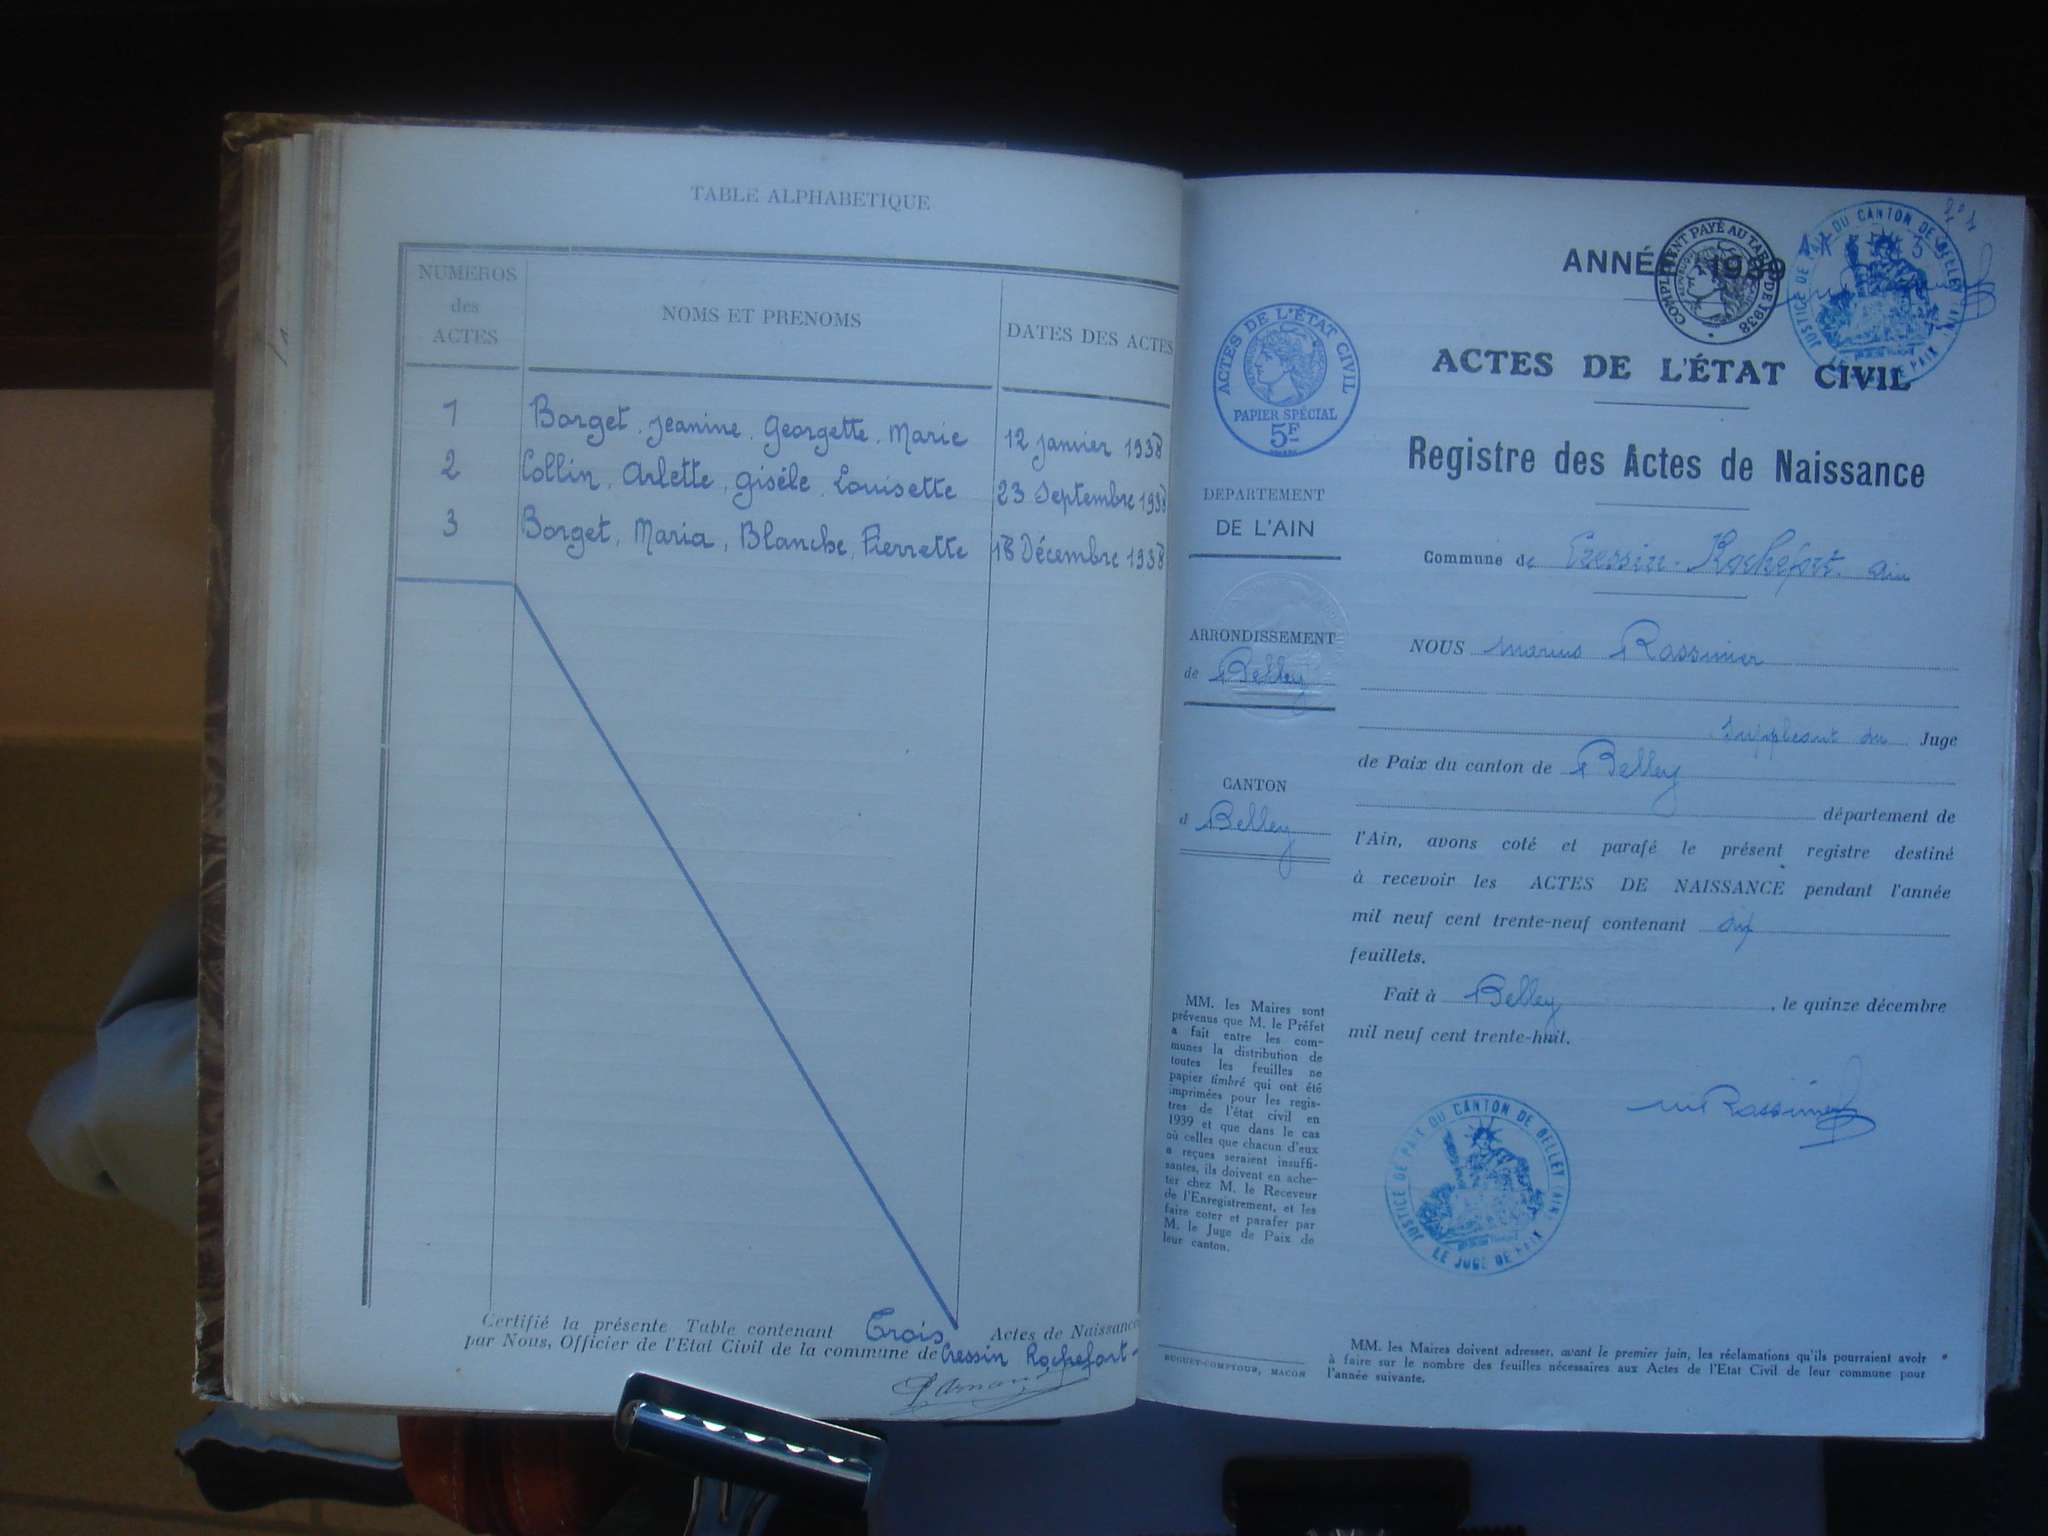 TABLE ALPHABETIQUE
NUMEROS
des
ACTES
NOMS ET PRENOMS
DATES DES ACTES
1 Borget, Jeanine, Georgette, Marie 12 Janvier 1938
2 Collin, Arlette, Gisèle, Louisette 23 Septembre 1938
3 Borget, Maria, Blanche, Pierrette 18 Décembre 1938
Certifié la présente Table contenant Trois Actes de Naissance
par Nous, Officier de l'Etat Civil de la commune de Cressin Rochefort-
ANNÉE 1939
COMPLEMENT PAYÉ AU TARIF DE 1938
JUSTICE DE PAIX DU CANTON DE BELLEY (AIN)
ACTES DE L'ÉTAT CIVIL
PAPIER SPÉCIAL
5F
ACTES DE L'ÉTAT CIVIL
Registre des Actes de Naissance
DEPARTEMENT
DE L'AIN
Commune de Cressin-Rochefort Ain
ARRONDISSEMENT
de Belley
CANTON
d Belley
NOUS Marius Rassinier
Suppléant du Juge
de Paix du canton de Belley
département de
l'Ain, avons coté et parafé le présent registre destiné
à recevoir les ACTES DE NAISSANCE pendant l'année
mil neuf cent trente-neuf contenant
feuillets.
Fait à Belley, le quinze décembre
mil neuf cent trente-huit.
MM. les Maires sont
prévenus que M. le Préfet
a fait entre les com-
munes la distribution de
toutes les feuilles de
papier timbré qui ont été
imprimées pour les regis-
tres de l'état civil en
1939 et que dans le cas
où celles que chacun d'eux
a reçues seraient insuffi-
santes, ils doivent en ache-
ter chez M. le Receveur
de l'Enregistrement, et les
faire coter et parafer par
M. le Juge de Paix de
leur canton.
JUSTICE DE PAIX DU CANTON DE BELLEY (AIN)
LE JUGE DE PAIX
BUGUET-COMPTOUR, MACON
MM. les Maires doivent adresser, avant le premier juin, les réclamations qu'ils pourraient avoir
à faire sur le nombre des feuilles nécessaires aux Actes de l'Etat Civil de leur commune pour
l'année suivante.